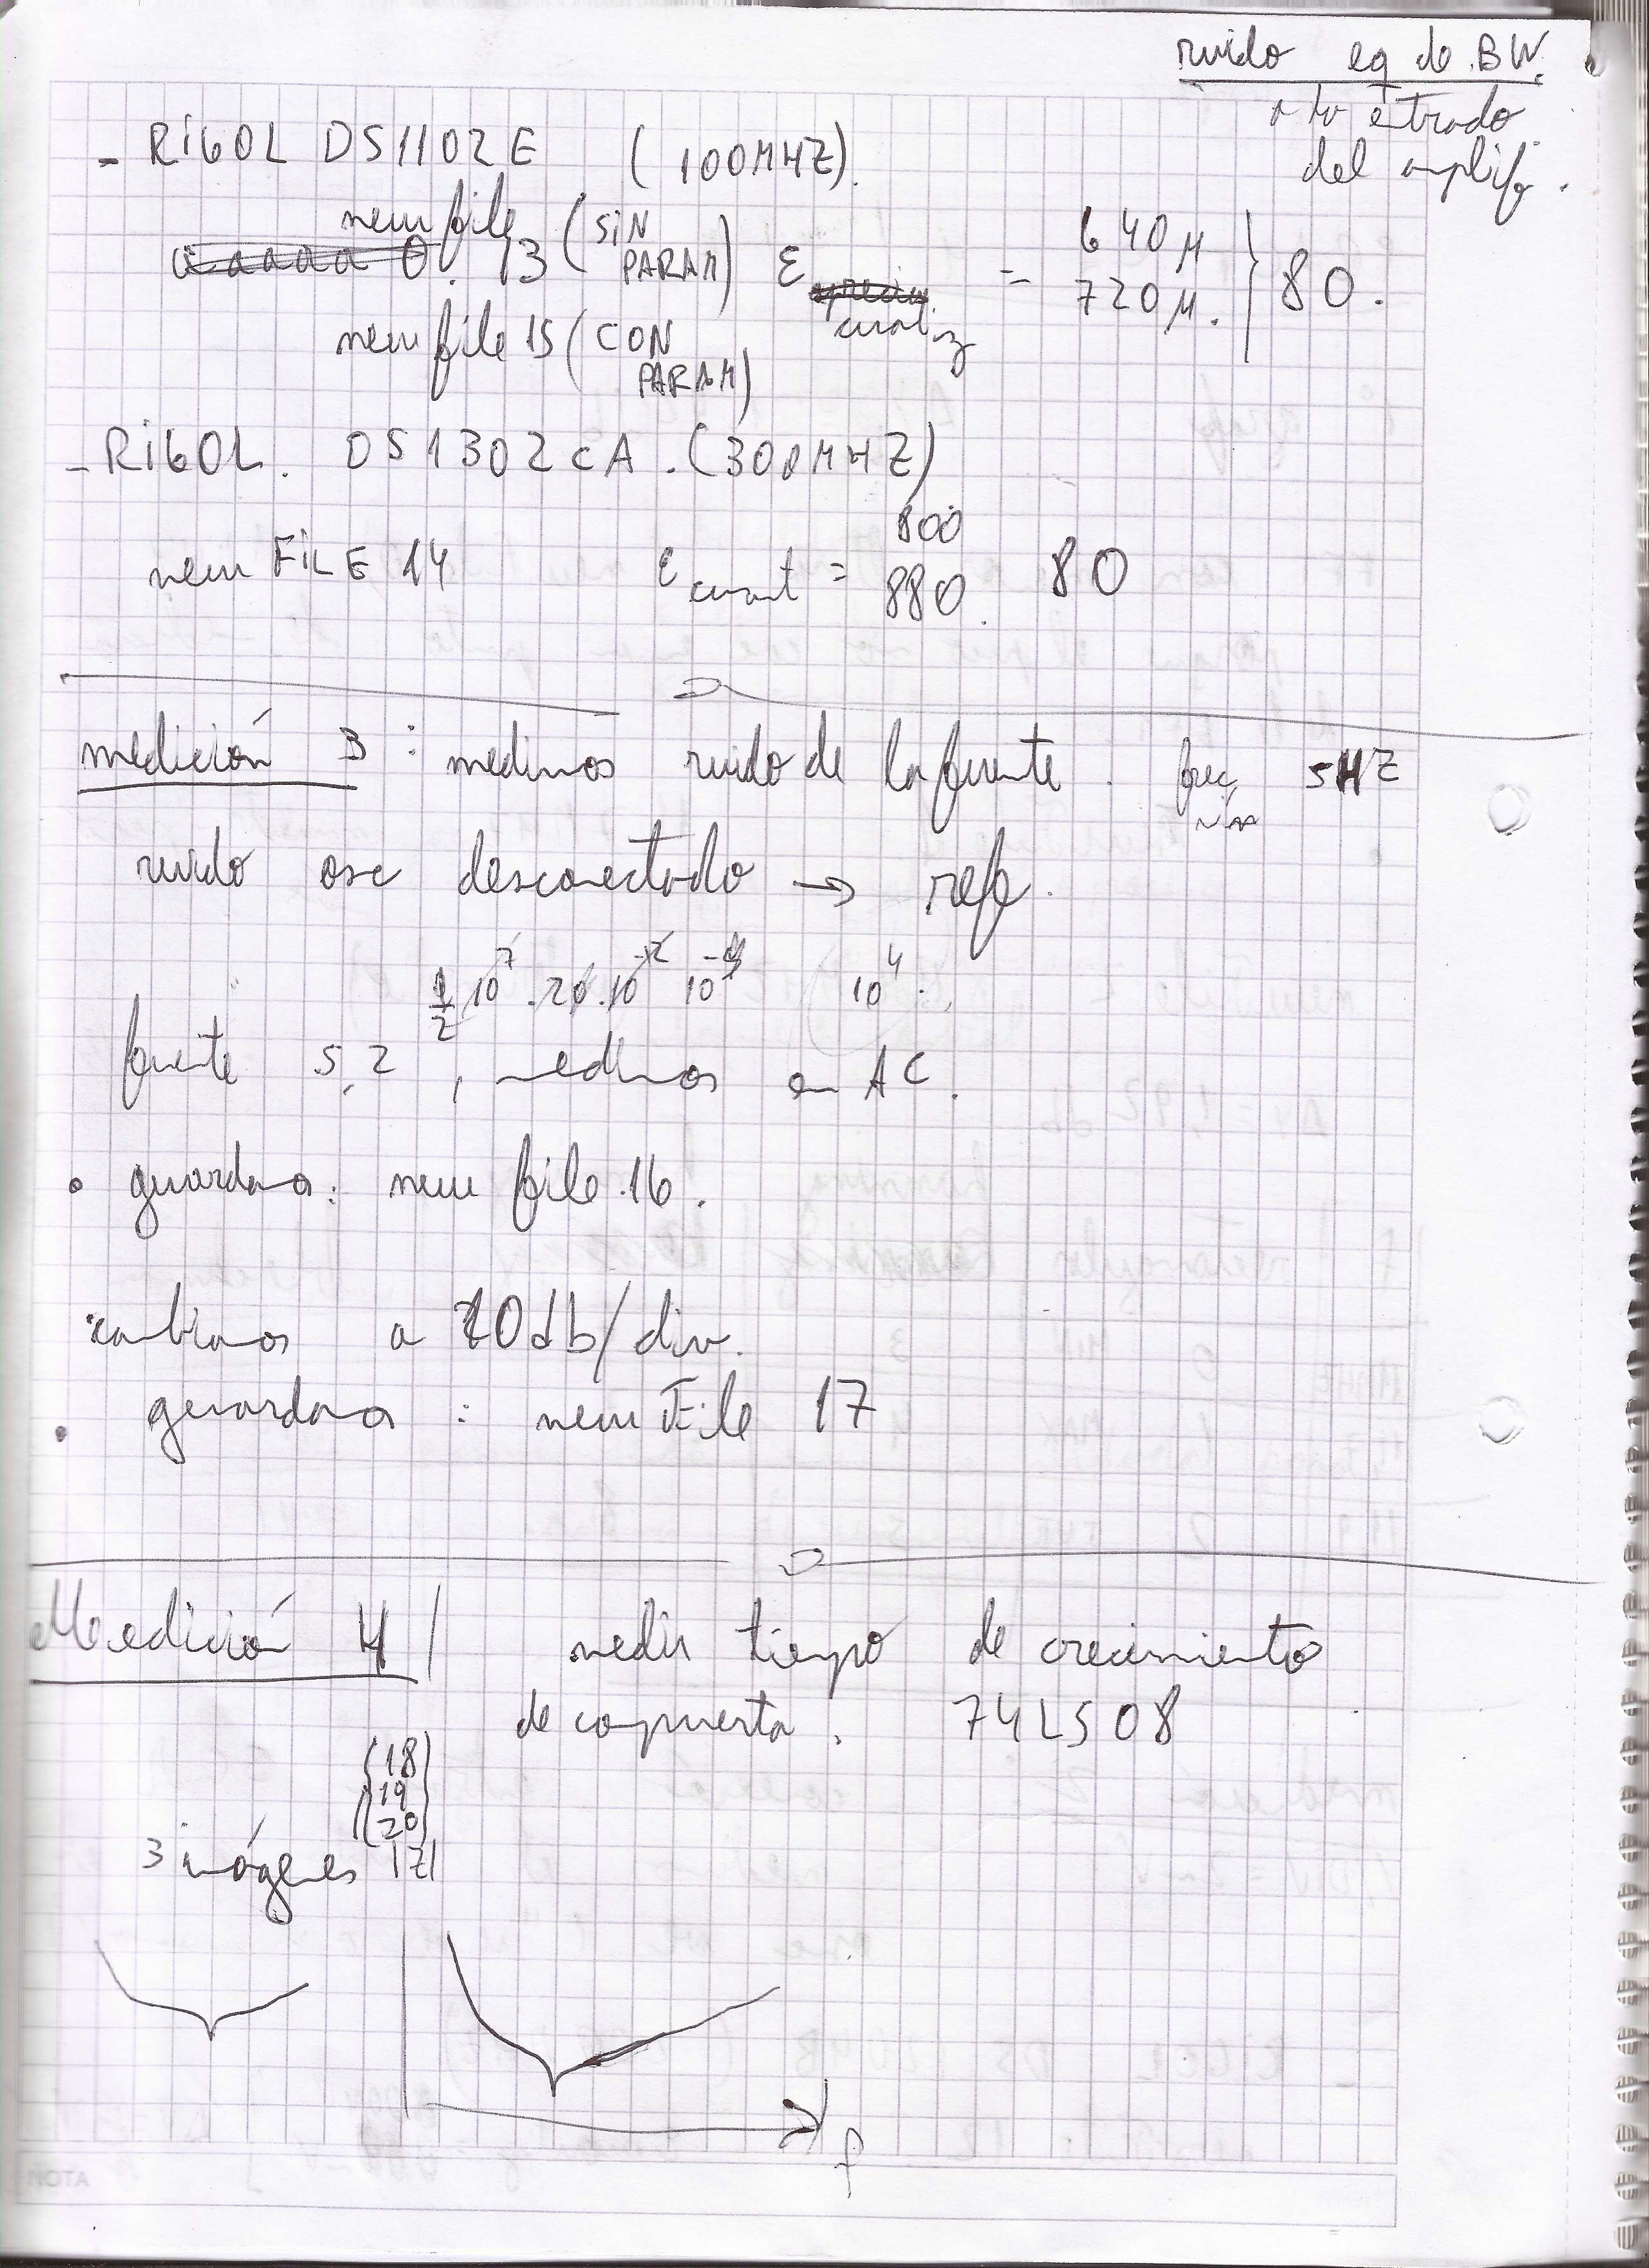 ruido eq de BW.
a la entrada
del amplif.
- RiGOL DS1102E (100MHZ).
new file 13 (SiN PARAM) ε cuantiz = 640μ 720μ. } 80.
new file 15 (CON PARAM)
- RiGOL. DS1302CA. (300MHZ)
new FiLE 14 ε cuant = 800 880. 80
medición 3 : medimos ruido de la fuente. frec 5HZ
ruido osc desconectado → refe.
1/2 10^7 . 20 . 10^-12 10^4 .
fuente 5,2 , medimos en AC.
• guardamos: new file 16.
cambiamos a 20db/div.
• guardamos : new File 17
Medición 4 / medir tiempo de crecimiento
de compuerta. 74LS08
(18)
(19)
(20)
3 imágenes |21|
f